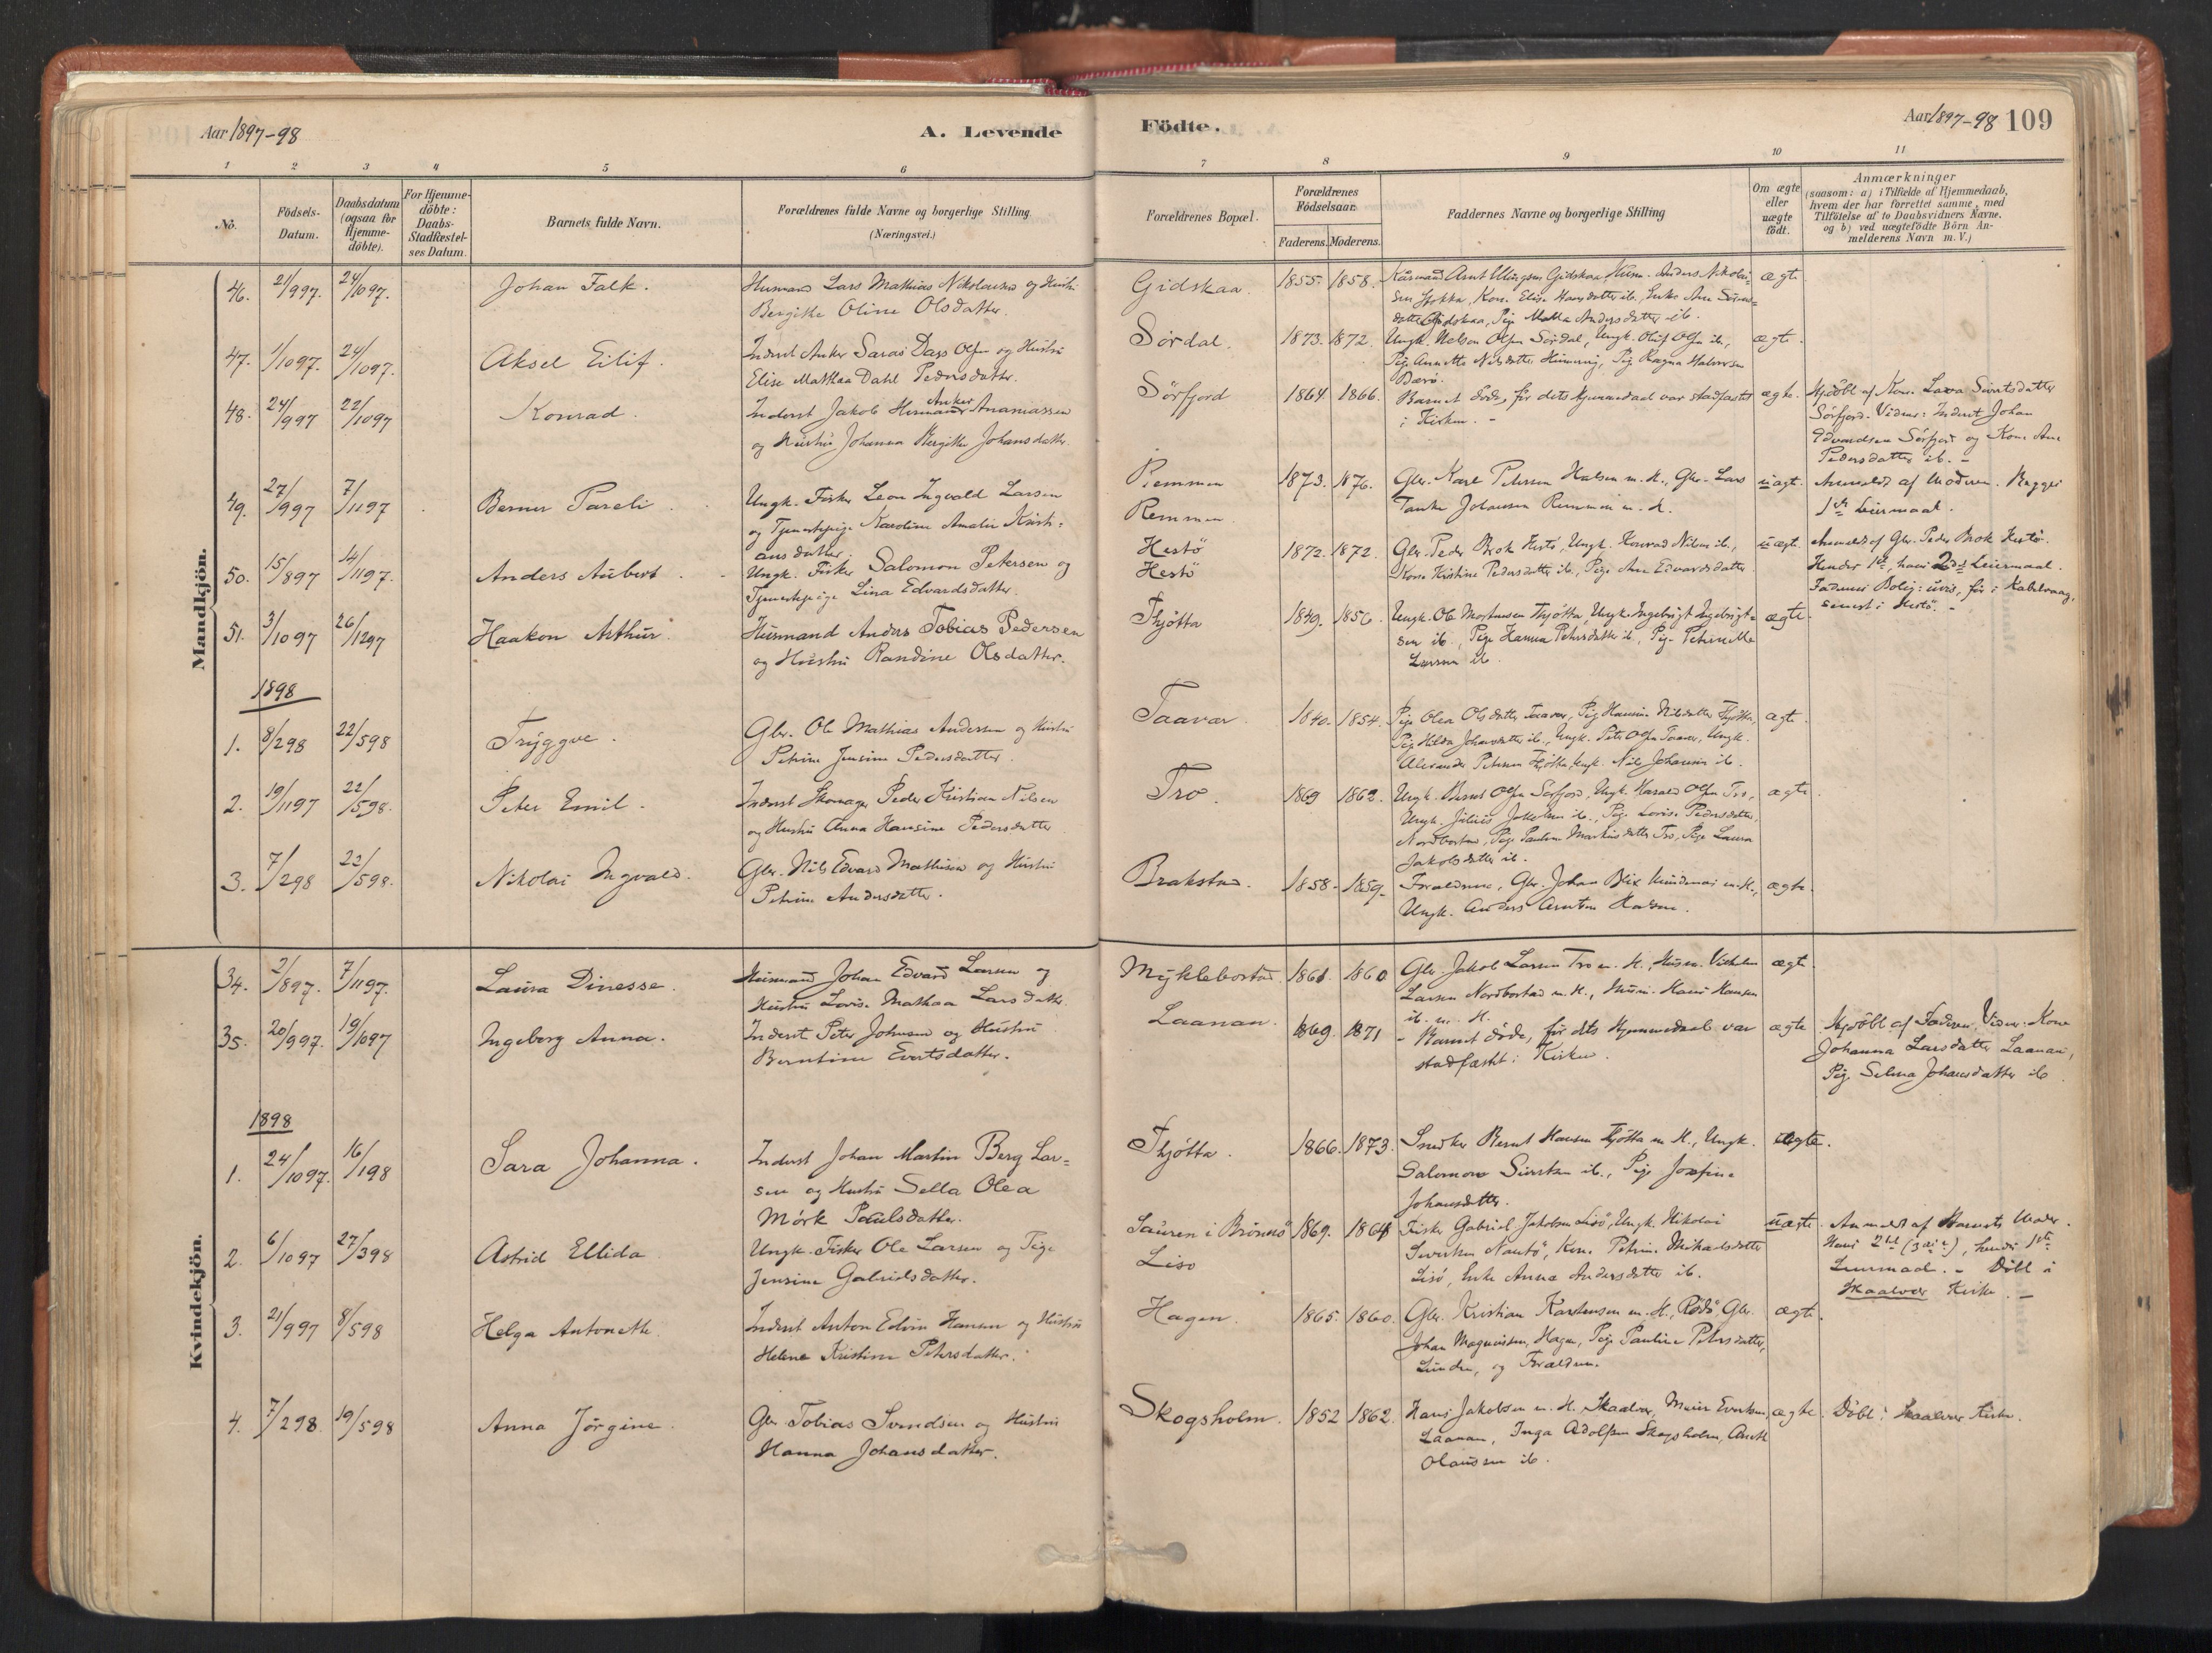 Aar 1897-98
A. Levende
Födte.
Aar 1897-98 109
1 2 3 4 5 6 7 8 9 10 11
No.
Födsels-
Datum.
Daabsdatum
(ogsaa for
Hjemme-
döbte).
For Hjemme-
döbte:
Daabs-
Stadfæstel-
ses Datum.
Barnets fulde Navn.
Forældrenes fulde Navne og borgerlige Stilling
(Næringsvei.)
Forældrenes Bopæl.
Forældrenes
Födselsaar.
Faderens. Moderens.
Faddernes Navne og borgerlige Stilling
Om ægte
eller
uægte
födt.
Anmærkninger
(saasom: a) i Tilfælde af Hjemmedaab,
hvem der har forrettet samme, med
Tilföielse af to Daabsvidners Navne.
og b) ved uægtefödte Börn An-
melderens Navn m. V.)
Mandkjön.
46. 21/997. 24/1097. Johan Falk.
Husmand Lars Mathias Nikolaisen og Hustru
Bergitte Oline Olsdatter.
Gidskaa. 1855. 1858.
Elise Hansdatter ib., Enke Ane Sörens-
datter Gidskaa, Pige Andersdatter ib.
ægte
47. 1/1097. 24/1097. Aksel Eilif.
Inderst Anker Saras Dass Olsen og Hustru
Elise Mathea Dahl Pedersdatter.
Sördal. 1873. 1872.
Ungk. Nelson Olsen Sördal, Ungk. Oluf Olsen ib.,
Pige Nilsdatter Pige Ragna Halvorsen
ægte.
48. 24/997 22/1097 Konrad.
Inderst Jakob Herman Anker Ananiassen
og Hustru Johanna Bergitte Johansdatter.
Sörfjord 1864 1866.
Barnet döde, för dets Hjemmedaab var stadfæstet
i Kirken. -
ægte.
Hjdöbt af Kone Sivertsdatter
Sörfjord. Vidner: Inderst Johan
Edvardsen Sörfjord og Kone Ane
Pedersdatter ib. -
49. 27/997 7/1197 Berner Pareli
Ungk. Fisker Leon Ingvald Larsen
og Tjenestepige Karoline Amalie Kristi-
ansdatter.
Remmen
Remmen. 1873. 1876.
Gbr. Karl Petersen Halsen m. H., Gbr. Lars
Johansen Remmen m. H.
uægte.
Anmeldt af Moderen. Begges
1ste Leiermaal.
50. 15/897 14/1197. Anders Aubert
Ungk. Fisker Salomon Petersen og
Tjenestepige Lina Edvardsdatter.
Hestö
Hestö 1872. 1872.
Gbr. Peder Brok Hestö, Ungk. Konrad Nilsen ib.,
Kone Kristine Pedersdatter ib., Pige Ane Edvardsdatter
uægte.
Anmeldt af Gbr. Peder Brok Hestö.
Hendes 1ste, hans 2det Leiermaal.
Faderens Bolig: uvis, för i Kabelvaag,
senest i Hestö. -
51. 3/1097 26/1297 Haakon Arthur.
Husmand Anders Tobias Pedersen
og Hustru Randine Olsdatter.
Thjötta 1849. 1856.
Ungk. Ole Mortensen Thjötta, Ungk. Ingebrigt Ingebrigt-
sen ib., Pige Hanna Petersdatter ib., Pige Petrine
Larsen ib.
ægte.
1898
1. 8/298 22/598 Tryggve.
Gbr. Ole Mathias Andersen og Hustru
Petrine Jensine Pedersdatter.
Taavær 1840. 1854.
Pige Olea Olsdatter Taavær, Pige Hansine Nilsdatter Thjötta,
Pige Hilda Johansdatter ib., Ungk. Peter Olsen Taavær, Ungk.
Alexander Petersen Thjötta, Ungk. Nils Johansen ib.
ægte.
2. 19/1197 22/598. Peter Emil.
Inderst Skomager Peder Kristian Nilsen
og Hustru Anna Hansine Pedersdatter
Tro. 1869 1862.
Ungk. Bernt Olsen Sörfjord, Ungk. Harald Olsen Tro,
Ungk. Julius Jakobsen ib., Pige Lovise Pedersdatter
Nordbostad, Pige Pauline Markusdatter Tro, Pige Laura
Jakobsdatter ib.
ægte.
3. 7/298 22/598. Nikolai Ingvald.
Gbr. Nils Edvard Mathisen og Hustru
Petrine Andersdatter.
Brakstad. 1858. 1859.
Forældrene, Gbr. Johan Blix m. H.,
Ungk. Anders Arntsen
ægte.
Kvindekjön.
34. 2/897. 7/1197. Laura Dinesse.
Husmand Johan Edvard Larsen og
Hustru Lovise Mathea Larsdatter
Myklebostad. 1861. 1860
Gbr. Jakob Larsen Tro m. H., Husm. Vilhelm
Larsen Nordbostad m. H., Husm. Hans Hansen
ib. m. H.
ægte.
35. 20/997. 19/1097 Ingeborg Anna.
Inderst Peter Johnsen og Hustru
Berntine Evertsdatter.
Laanan. 1869. 1871
- Barnet döde, för dets Hjemmedaab var
stadfæstet i Kirken.
ægte
Hjdöbt af Faderen. Vidner: Kone
Johanna Larsdatter Laanan,
Pige Selma Johansdatter ib.
1898
1. 24/1097. 16/198 Sara Johanna.
Inderst Johan Martin Berg Lar-
sen og Hustru Sella Olea
Mörk Paulsdatter.
Thjötta. 1866. 1873.
Snedker Bernt Hansen Thjötta m H., Ungk.
Salomon Sivertsen ib., Pige Josefine
Johansdatter.
ægte.
2. 6/1097 27/398 Astrid Ellida
Ungk. Fisker Ole Larsen og Pige
Jensine Gabrielsdatter.
Sauren i Brönnö 1869. 1864
Lisö
Fisker Gabriel Jakobsen Lisö, Ungk. Nikolai
Sivertsen Kone Petrine Mikaelsdatter
Lisö, Enke Anna Andersdatter ib.
uægte.
Anmeldt af Barnets Moder.
Hans 2det (3die), hendes 1ste
Leiermaal. - Döbt i
Skaalvær Kirke. -
3. 21/997 8/598 Helga Antonette.
Inderst Anton Edvin Hansen og Hustru
Helene Kristine Petersdatter.
Hagen. 1865. 1860.
Gbr. Kristian Karstensen m. H., Rödö, Gbr.
Johan Magnussen, Hagen, Pige Pauline Petersdatter,
Linden, og Forældrene.
ægte.
4. 7/298. 19/598 Anna Jörgine.
Gbr. Tobias Svendsen og Hustru
Hanna Johansdatter.
Skogsholm. 1852 1862.
Hans Jakobsen m. H. Skaalvær, Evertsen,
Laanan, Inga Adolfsen Skogsholm,
Olaussen ib.
ægte. Döbt i Skaalvær Kirke.